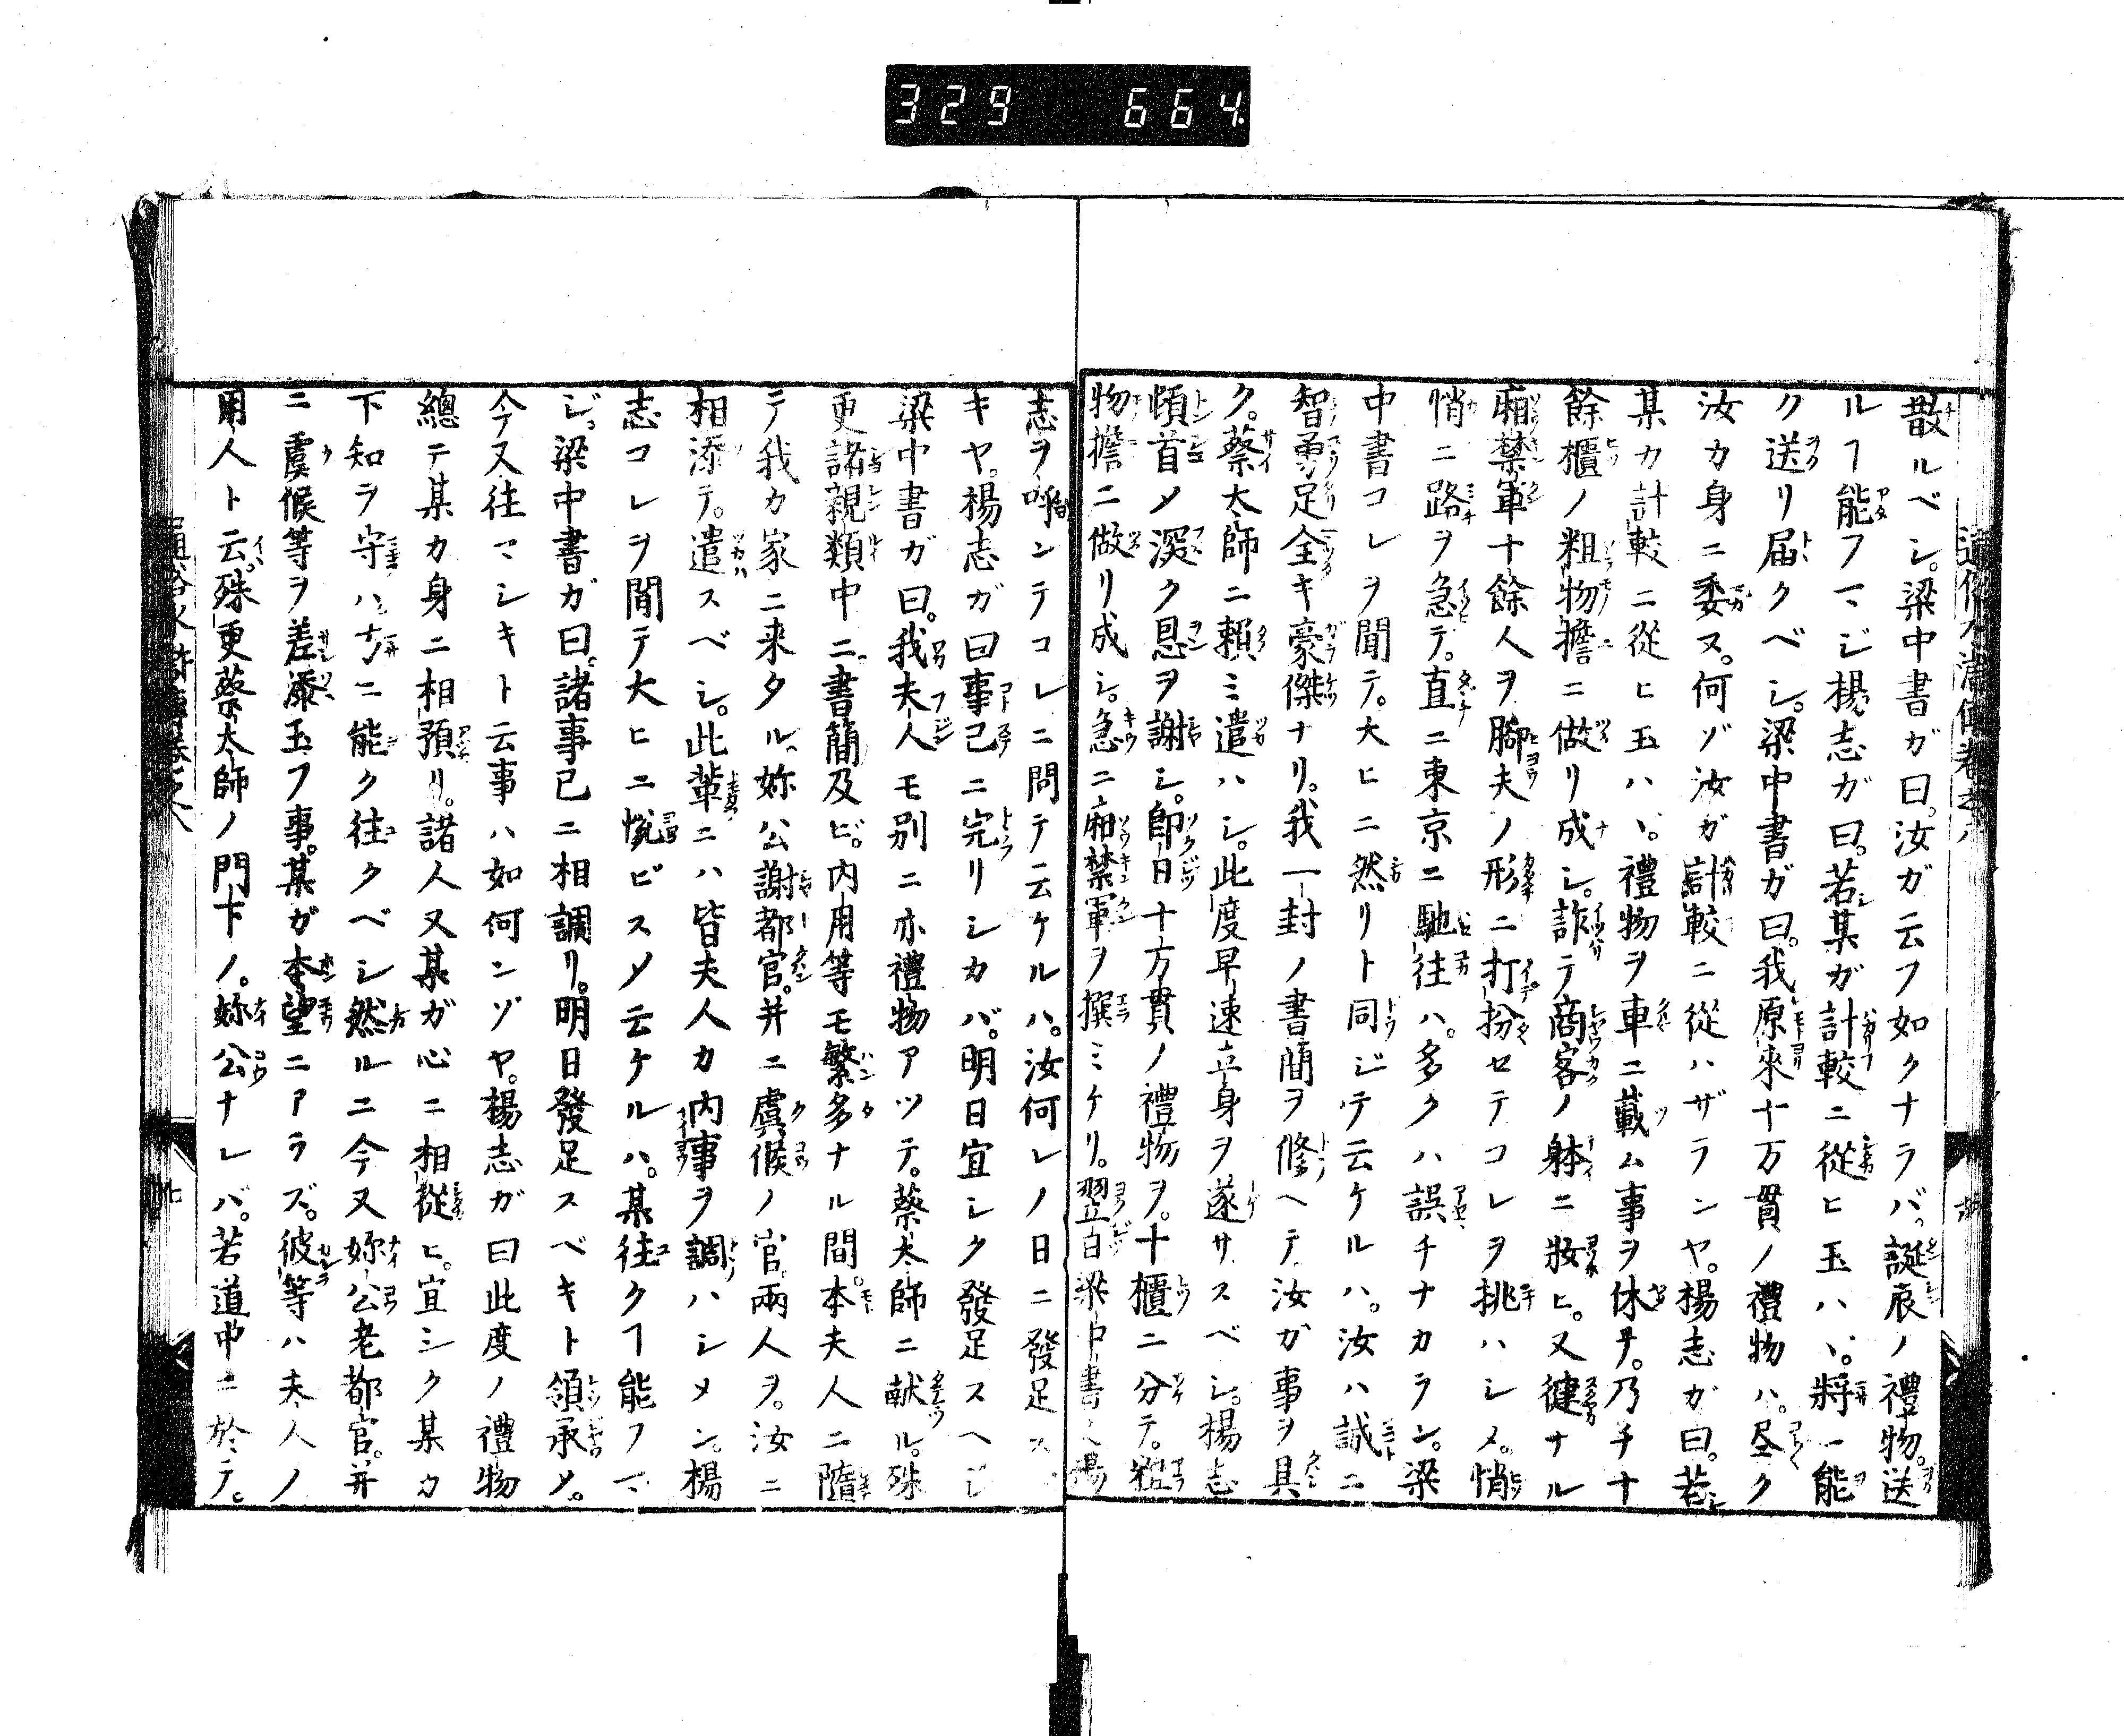 329 664
散ルベシ。梁中書ガ曰。汝ガ云フ如クナラバ。誕辰ノ禮物。送
ルヿ能フマジ楊志ガ曰。若某ガ計較ニ從ヒ玉ハヽ。將一能
ク送リ届クベシ。梁中書ガ曰。我原來十万貫ノ禮物ハ。尽ク
汝カ身ニ委ス。何ゾ汝ガ計較ニ從ハザランヤ。楊志ガ曰。若
某カ計較ニ從ヒ玉ハヽ。禮物ヲ車ニ載ム事ヲ休ヲ。乃チ十
餘櫃ノ粗物擔ニ做リ成シ。詐テ商客ノ躰ニ妝ヒ。又健ナル
廂禁軍十餘人ヲ脚夫ノ形ニ打扮セテコレヲ挑ハシメ。悄
悄ニ路ヲ急テ。直ニ東京ニ馳往ハ。多クハ誤チナカラン。梁
中書コレヲ聞テ。大ヒニ然リト同ジテ云ケルハ。汝ハ誠ニ
智勇足全キ豪傑ナリ。我一封ノ書簡ヲ修ヘテ汝ガ事ヲ具
ク。蔡太師ニ賴ミ遣ハシ。此度早速立身ヲ遂サスベシ。楊志
頓首メ深ク恩ヲ謝シ。即日十万貫ノ禮物ヲ。十櫃ニ分テ。粗
物擔ニ做リ成シ。急ニ廂禁軍ヲ撰ミケリ。翌日梁中書又楊
志ヲ呼ンテコレニ問テ云ケルハ。汝何レノ日ニ發足ス
キヤ。楊志ガ曰事已ニ完リシカバ。明日宜シク發足スヘシ
梁中書ガ曰。我夫人モ別ニ亦禮物アツテ。蔡太師ニ献ル。殊
更諸親類中ニ。書簡及ビ。内用等モ繁多ナル間。本夫人ニ隨
テ我カ家ニ来タル。妳公謝都官。并ニ虞候ノ官兩人ヲ。汝ニ
相添テ。遣スベシ。此輩ニハ皆夫人カ内事ヲ調ハシメン。楊
志コレヲ聞テ大ヒニ悅ビスメ云ケルハ。某往クヿ能フマ
ジ。梁中書ガ曰。諸事已ニ相調リ。明日發足スベキト領承メ。
今又往マシキト云事ハ如何ンゾヤ。楊志ガ曰此度ノ禮物
總テ某カ身ニ相預リ。諸人又某ガ心ニ相從ヒ。宜シク某カ
下知ヲ守ハヾナニ能ク往クベシ然ルニ今又妳公老都官。并
ニ虞候等ヲ差添玉フ事。某ガ本望ニアラズ。彼等ハ夫人ノ
用人ト云。殊更蔡太師ノ門下ノ。妳公ナレバ。若道中ニ於テ。